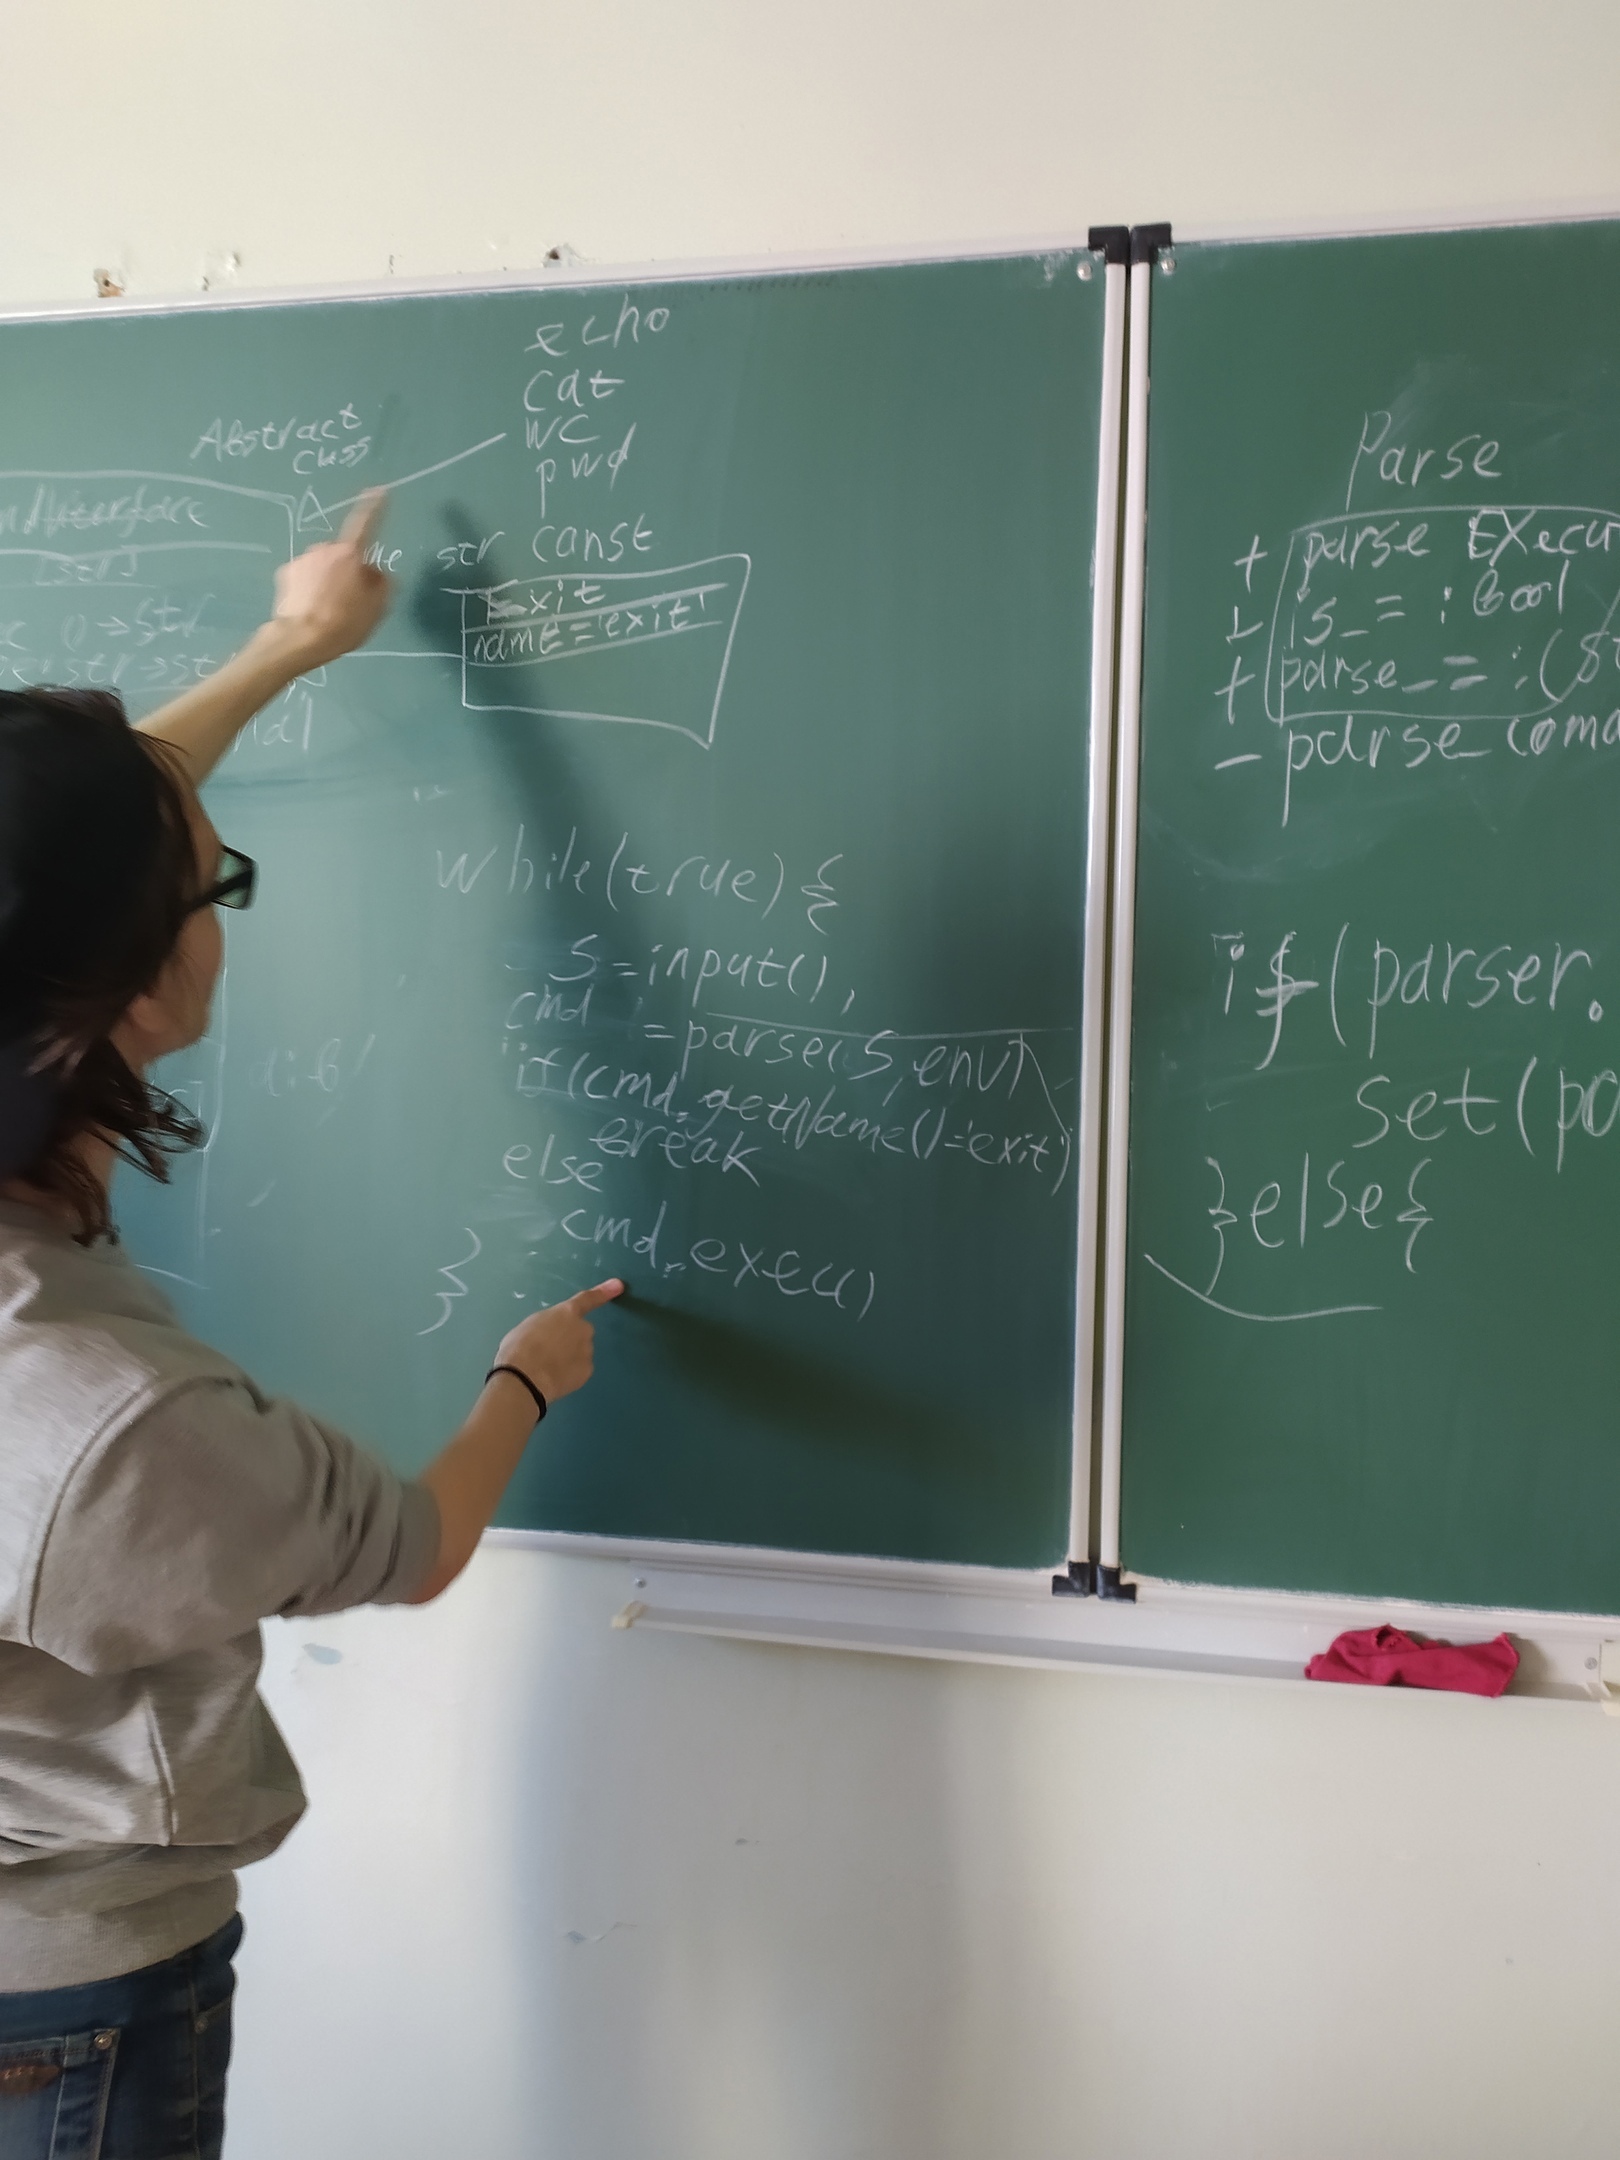 echo
cat
wc
pwd
Abstract
class
Interface
[str]
str const
() → str
str → st
Exit
name = 'exit'
while(true) {
S = input(),
cmd = parse(S, env)
if(cmd.getName() = 'exit')
break
else
cmd.exec()
}
Parse
+ parse Execu
+ is_ = : Bool
+ parse_ = : (St
- parse_ coma
if (parser.
set(po
} else {